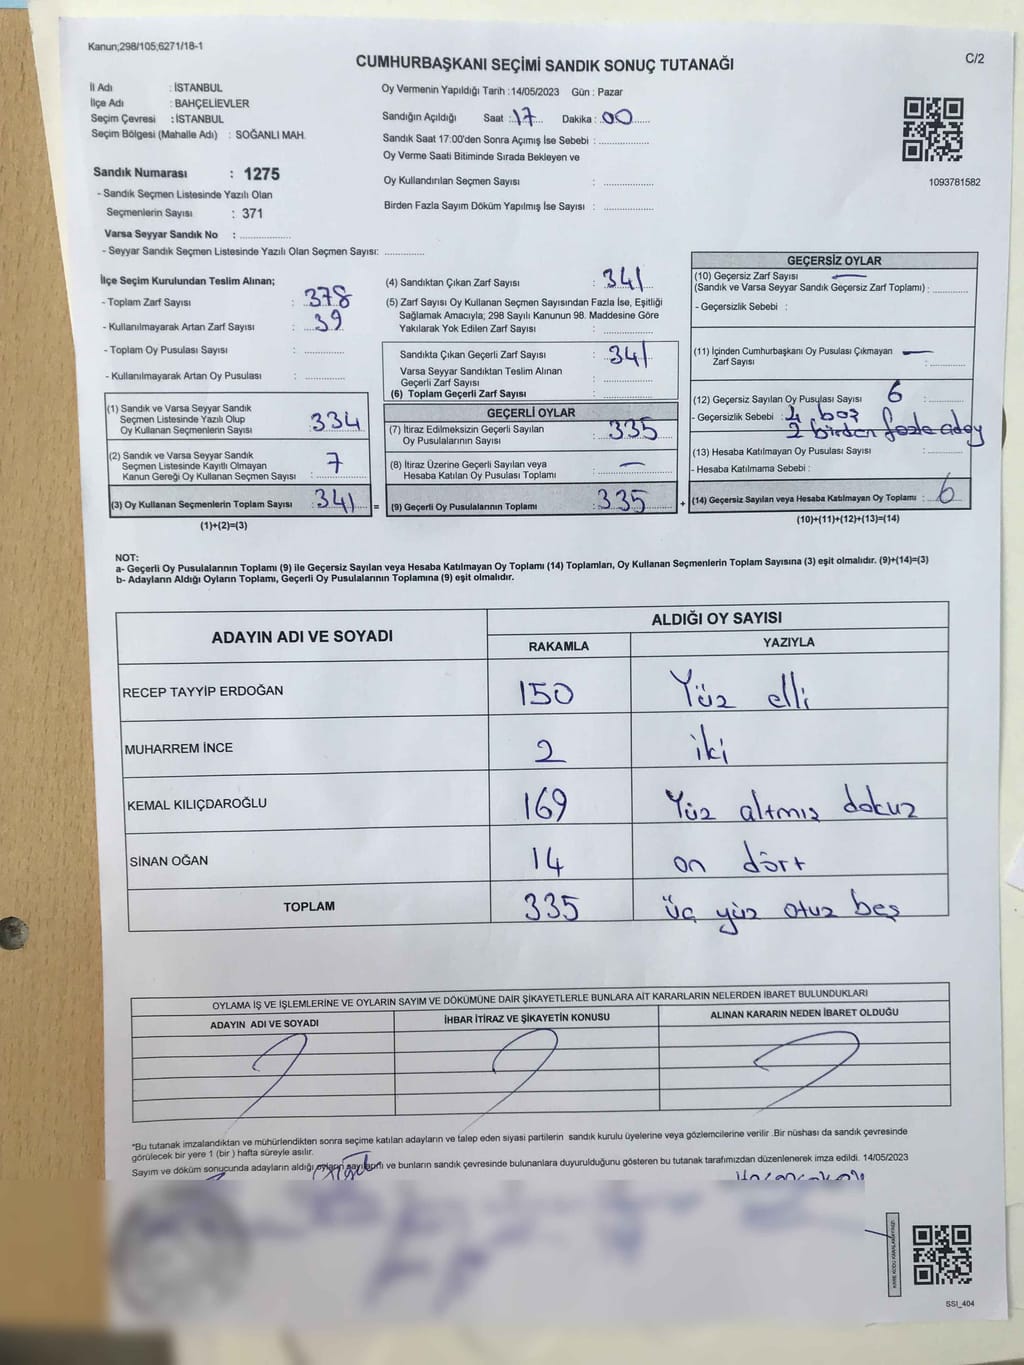 Kanun;298/105;6271/18-1
C/2
CUMHURBAŞKANI SEÇİMİ SANDIK SONUÇ TUTANAĞI
İl Adı : İSTANBUL
İlçe Adı : BAHÇELİEVLER
Seçim Çevresi : İSTANBUL
Seçim Bölgesi (Mahalle Adı) : SOĞANLI MAH.
Sandık Numarası : 1275
- Sandık Seçmen Listesinde Yazılı Olan
Seçmenlerin Sayısı : 371
Varsa Seyyar Sandık No : ..............
- Seyyar Sandık Seçmen Listesinde Yazılı Olan Seçmen Sayısı: ............
Oy Vermenin Yapıldığı Tarih :14/05/2023 Gün : Pazar
Sandığın Açıldığı Saat : 17 Dakika : 00
Sandık Saat 17:00'den Sonra Açımış İse Sebebi : ...............
Oy Verme Saati Bitiminde Sırada Bekleyen ve
Oy Kullandırılan Seçmen Sayısı : ...............
Birden Fazla Sayım Döküm Yapılmış İse Sayısı : ...............
1093781582
İlçe Seçim Kurulundan Teslim Alınan;
- Toplam Zarf Sayısı : 378
- Kullanılmayarak Artan Zarf Sayısı : 39
- Toplam Oy Pusulası Sayısı : ............
- Kullanılmayarak Artan Oy Pusulası : ............
(1) Sandık ve Varsa Seyyar Sandık
Seçmen Listesinde Yazılı Olup
Oy Kullanan Seçmenlerin Sayısı : 334
(2) Sandık ve Varsa Seyyar Sandık
Seçmen Listesinde Kayıtlı Olmayan
Kanun Gereği Oy Kullanan Seçmen Sayısı : 7
(3) Oy Kullanan Seçmenlerin Toplam Sayısı : 341
(1)+(2)=(3)
=
(4) Sandıktan Çıkan Zarf Sayısı : 341
(5) Zarf Sayısı Oy Kullanan Seçmen Sayısından Fazla İse, Eşitliği
Sağlamak Amacıyla; 298 Sayılı Kanunun 98. Maddesine Göre
Yakılarak Yok Edilen Zarf Sayısı : ...............
Sandıkta Çıkan Geçerli Zarf Sayısı : 341
Varsa Seyyar Sandıktan Teslim Alınan
Geçerli Zarf Sayısı : ...............
(6) Toplam Geçerli Zarf Sayısı : ...............
GEÇERLİ OYLAR
(7) İtiraz Edilmeksizin Geçerli Sayılan
Oy Pusulalarının Sayısı : 335
(8) İtiraz Üzerine Geçerli Sayılan veya
Hesaba Katılan Oy Pusulası Toplamı : —
(9) Geçerli Oy Pusulalarının Toplamı : 335
+
GEÇERSİZ OYLAR
(10) Geçersiz Zarf Sayısı —
(Sandık ve Varsa Seyyar Sandık Geçersiz Zarf Toplamı) : ............
- Geçersizlik Sebebi :
(11) İçinden Cumhurbaşkanı Oy Pusulası Çıkmayan —
Zarf Sayısı : ............
(12) Geçersiz Sayılan Oy Pusulası Sayısı 6 : ............
- Geçersizlik Sebebi : 4 boş
2 birden fazla aday
(13) Hesaba Katılmayan Oy Pusulası Sayısı : ............
- Hesaba Katılmama Sebebi :
(14) Geçersiz Sayılan veya Hesaba Katılmayan Oy Toplamı : 6
(10)+(11)+(12)+(13)=(14)
NOT:
a- Geçerli Oy Pusulalarının Toplamı (9) ile Geçersiz Sayılan veya Hesaba Katılmayan Oy Toplamı (14) Toplamları, Oy Kullanan Seçmenlerin Toplam Sayısına (3) eşit olmalıdır. (9)+(14)=(3)
b- Adayların Aldığı Oyların Toplamı, Geçerli Oy Pusulalarının Toplamına (9) eşit olmalıdır.
ADAYIN ADI VE SOYADI
ALDIĞI OY SAYISI
RAKAMLA YAZIYLA
RECEP TAYYİP ERDOĞAN 150 Yüz elli
MUHARREM İNCE 2 iki
KEMAL KILIÇDAROĞLU 169 Yüz altmış dokuz
SİNAN OĞAN 14 on dört
TOPLAM 335 üç yüz otuz beş
OYLAMA İŞ VE İŞLEMLERİNE VE OYLARIN SAYIM VE DÖKÜMÜNE DAİR ŞİKAYETLERLE BUNLARA AİT KARARLARIN NELERDEN İBARET BULUNDUKLARI
ADAYIN ADI VE SOYADI İHBAR İTİRAZ VE ŞİKAYETİN KONUSU ALINAN KARARIN NEDEN İBARET OLDUĞU
*Bu tutanak imzalandıktan ve mühürlendikten sonra seçime katılan adayların ve talep eden siyasi partilerin sandık kurulu üyelerine veya gözlemcilerine verilir .Bir nüshası da sandık çevresinde
görülecek bir yere 1 (bir ) hafta süreyle asılır.
Sayım ve döküm sonucunda adayların aldığı oyların sayılarını ve bunların sandık çevresinde bulunanlara duyurulduğunu gösteren bu tutanak tarafımızdan düzenlenerek imza edildi. 14/05/2023
SSI_404